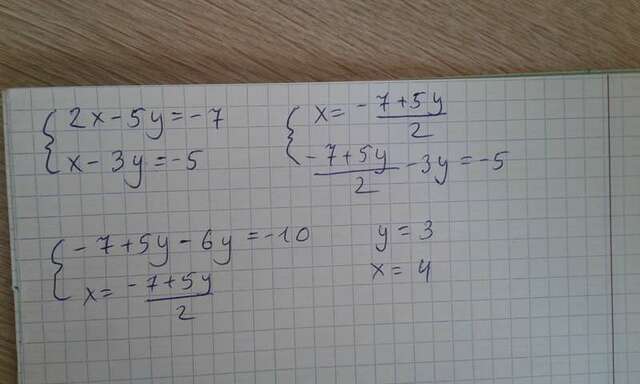 2x-5y=-7
x-3y=-5
x= -7+5y/2
-7+5y/2 -3y=-5
-7+5y-6y=-10
x= -7+5y/2
y=3
x=4